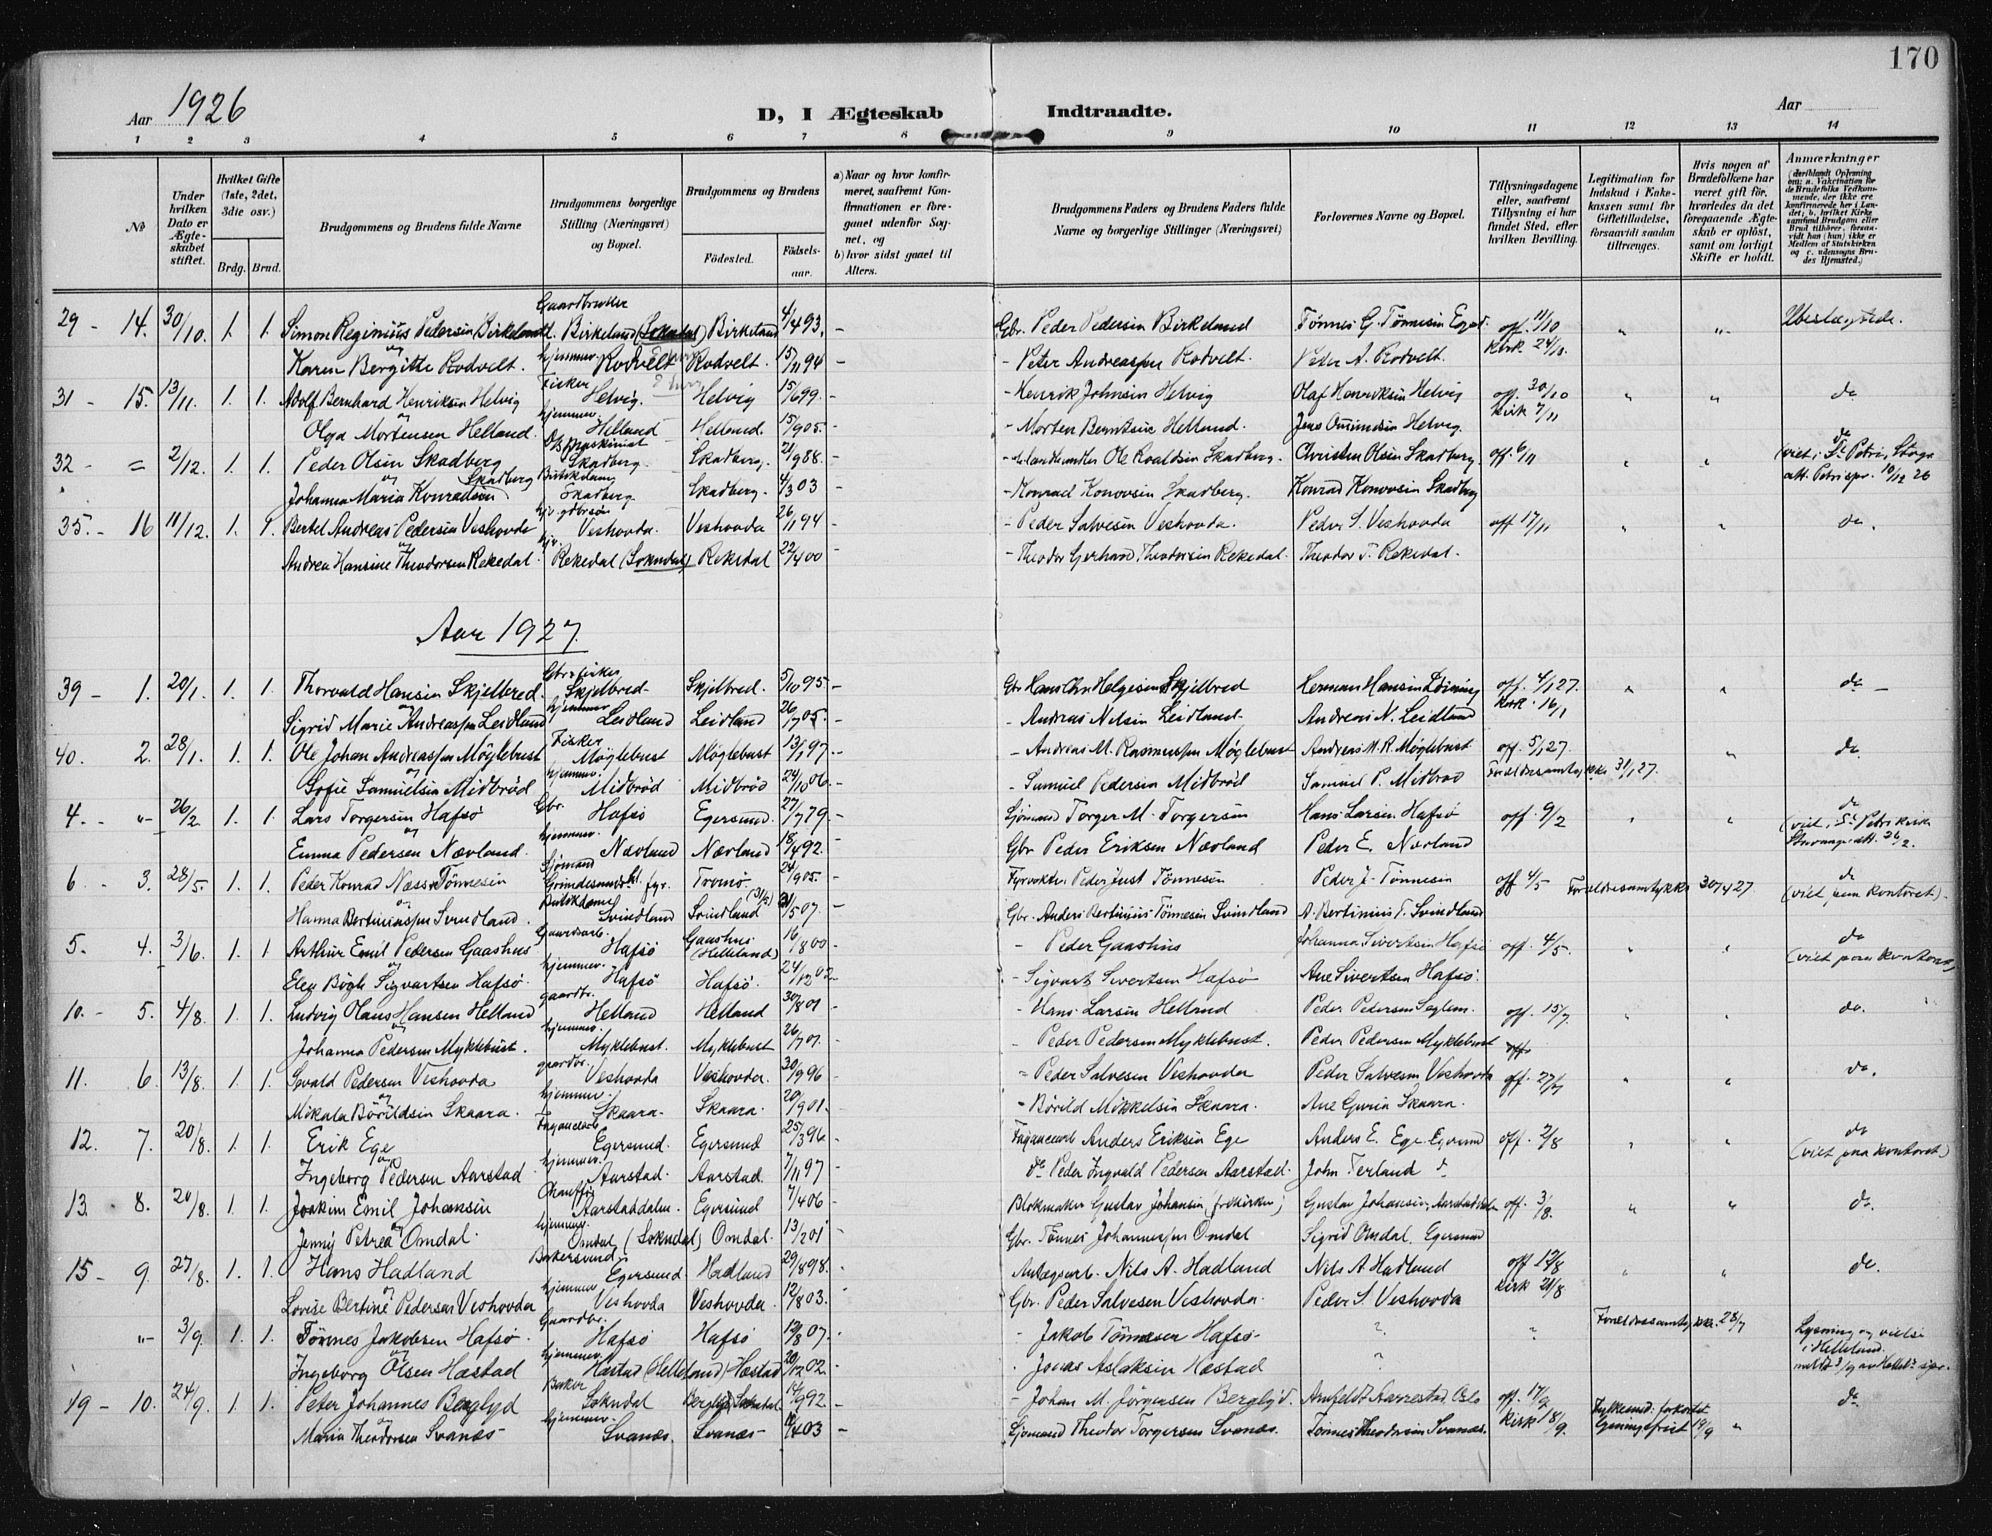 170
Aar 1926
D, I Ægteskab Indtraadte.
Aar
1 2 3 4 5 6 7 8 9 10 11 12 13 14
№
Under hvilken Dato er Ægteskabet stiftet.
Hvilket Gifte (1ste, 2det, 3die osv.)
Brdg. Brud.
Brudgommens og Brudens fulde Navne
Brudgommens borgerlige Stilling (Næringsvei) og Bopæl.
Brudgommens og Brudens
Födested. Födsels-aar.
a) Naar og hvor konfirmeret, saafremt Konfirmationen er foregaaet udenfor Sognet, og
b) hvor sidst gaaet til Alters.
Brudgommens Faders og Brudens Faders fulde Navne og borgerlige Stillinger (Næringsvei)
Forlovernes Navne og Bopæl.
Tillysningsdagene eller, saafremt Tillysning ei har fundet Sted, efter hvilken Bevilling.
Legitimation for Indskud i Enkekassen samt for Giftetilladelse, forsaavidt saadan tiltrænges.
Hvis nogen af Brudefolkene har været gift för, hvorledes da det foregaaende Ægteskab er oplöst, samt om lovligt Skifte er holdt.
Anmærkninger
29 - 14. 30/10. 1. 1. Simon Reginius Pedersen Birkeland Gaardbruker Birkeland (Sokndal) Birkeland 4/4 93. - Gbr. Peder Pedersen Birkeland Tønnes G. Tønnesen Eged. off. 11/10 " " Ubeslægtede.
og Karen Bergitte Rodvelt. hjemmev. Rodvelt Rodvelt. 15/11 94 - - Peter Andreassen Rodvelt. Peder A. Rodvelt. Kirk. 24/10.
31 - 15. 13/11. 1. 1. Adolf Bernhard Henriksen Helvig Fisker Helvig. Helvig 15/6 99. - - Henrik Johnsen Helvig Olaf Henriksen Helvig off. 30/10 " " do
og Olga Mortensen Helland. hjemmev. Helland Helland. 15/9 05. - - Morten Berntsen Helland. Jens Omundsen Helvig. Kirk 7/11
32 - = 2/12. 1. 1. Peder Olsen Skadberg Skadberg. Skadberg. 21/9 88. - Ole Roaldsen Skadberg. Christen Olsen Skadberg. off. 6/11 " " do (viet i St. Petri, Stvgr.
og Johanna Maria Konradsen Skadberg Butikdame Skadberg. Skadberg. 4/3 03 - - Konrad Konovsen Skadberg. Konrad Konovsen Skadberg att. Petri spr. 10/12 26
35. - 16 11/12. 1. 1. Bertel Andreas Pedersen Veshovda Veshovda. Veshovda 26/11 94 - - Peder Salvesen Veshovda. Peder S. Veshovda off 17/11 " " do.
og Andrea Hansine Theodorsen Rekedal. Rekedal (Sokndal) Rekedal 22/4 00 - Theodor Gerhard Theodorsen Rekedal. Theodor T. Rekedal.
Aar 1927.
39 - 1. 20/1. 1. 1. Thorvald Hansen Skjelbred. Gbr. fisker Skjelbred Skjelbred. 5/10 95. - Gbr. Hans Chr. Helgesen Skjelbred Herman Hansen off. 4/1 27. " " do -
og Sigrid Marie Andreassen Leidland hjemmev Leidland Leidland 26/7 05. - - Andreas Nilsen Leidland. Andreas N. Leidland Kirk. 16/1
40. 2. 28/1. 1. 1. Ole Johan Andreassen Møglebust Fisker Møglebust Møglebust 13/7 97. - - Andreas M. Rasmussen Møglebust Andreas M. R. Møglebust off. 5/1 27. " do
og Sofie Samuelsen Midbrød hjemmev. Midbrød Midbrød 24/10 06. - - Samuel Pedersen Midbrød Samuel P. Midbrød Foreldresamtykke 31/1 27.
4. - " 26/2 1. 1. Lars Torgersen Hafsø Gbr. Hafsø Egersund. 27/7 79. - Sjømand Torger M. Torgersen Hans Larsen Hafsø off 9/2 " " do (viet i St. Petri kirke
og Emma Pedersen Nævland. hjemmev. Nævland Nævland 18/4 92. - Gbr Peder Eriksen Nævland Peder E. Nævland Stavanger att. 26/2.
6 - 3. 28/5. 1. 1. Peder Konrad Næss Tønnesen Sjømand Grundesund fyr. Tromø. 24/9 05. - Fyrvokter Peder Just Tønnesen Peder J. Tønnesen off 4/5 Foreldresamtykke 30/4 27 do (viet paa kontoret).
og Hanna Bertiniussen Svindland. Butikdame Svindland Svindland 31/5 07. - Gbr. Anders Bertinius Tønnesen Svindland A. Bertinius T. Svindland
5. 4. 3/6. 1. 1. Arthur Emil Pedersen Gaashus Gaardsarb. Hafsø Gaashus (Helleland) 16/8 00 - - Peder Gaashus Johanna Sivertsen Hafsø off. 4/5. " " do (viet paa kontoret)
og Elen Bøgh Sigvartsen Hafsø. hjemmev. Hafsø Hafsø. 24/12 02 - - Sigvart Sivertsen Hafsø Ane Sivertsen Hafsø.
10. - 5. 4/8. 1. 1. Ludvig Olaus Hansen Helland gaardbr. Helland Helland 30/8 01 - - Hans Larsen Helland Peder Pedersen off. 15/7 " " do.
og Johanna Pedersen Myklebust. hjemmev. Myklebust. Myklebust 26/7 07. - - Peder Pedersen Myklebust. Peder Pedersen Myklebust off.
11. 6. 13/8. 1. 1. Sevald Pedersen Veshovda gaardbr. Veshovda Veshovda. 30/9 96 - - Peder Salvesen Veshovda Peder Salvesen Veshovda off. 27/7 " " do.
Mikala Børildsen Skaara. hjemmev. Skaara. Skaara. 20/9 01. - - Børild Mikkelsen Skaara. Ane Guria Skaara.
12. 7. 20/8. 1. 1. Erik Ege Fayancearb. Egersund. Egersund 25/3 96 - Fayancearb Anders Eriksen Ege Anders E. Ege Egersund off. 2/8 " " do (viet paa kontoret)
og Ingeborg Pedersen Aarstad hjemmev. Aarstad. Aarstad. 7/11 97 - do Peder Ingvald Pedersen Aarstad. John Terland do
13. 8. 20/8. 1. 1. Joakim Emil Johansen Chauffør Aarstaddalen. Egersund 7/4 06 - Blokmaker Gustav Johansen (frikirken) Gustav Johansen, Aarstaddalen off. 3/8. " " do.
og Jenny Petrea Omdal. hjemmev. Omdal (Sokndal) Omdal. 13/2 01 - Gbr. Tønnes Johannessen Omdal Sigrid Omdal, Egersund
15 - 9. 27/8. 1. 1. Hans Hadland Bakersvend Egersund Hadland 29/8 98. - Anlægsarb. Nils A. Hadland Nils A Hadland off 12/8 " " do.
og Lovise Bertine Pedersen Veshovda hjemmev Veshovda Veshovda. 12/8 03. - Gbr. Peder Salvesen Veshovda. Peder S. Veshovda Kirk 21/8
" 3/9. 1. 1. Tønnes Jakobsen Hafsø. Gaardbr. Hafsø Hafsø 12/8 07. - - Jakob Tønnesen Hafsø - " " Foreldresamtykke. 28/7 Lysning og vielse i Helleland.
og Ingeborg Olsen Hæstad hjemmev. Hæstad (Helleland) Hæstad 20/12 02. - - Jonas Aslaksen Hæstad "
19 - 10. 24/9. 1. 1. Peter Johannes Berglyd Baker Sokndal Berglyd Sokndal 14/6 92. - - Johan M. Jørgensen Berglyd. Arnfeldt Aarrestad Oslo off. 17/9 Fylkesmd. forkortet do
og Maria Theodorsen Svanæs hjemmev. Svanæs. Svanæs 4/4 03 - Sjømand Theodor Torgersen Svanæs. Tønnes Theodorsen Svanæs. Kirk 18/9. lysningsfrist 19/9 "